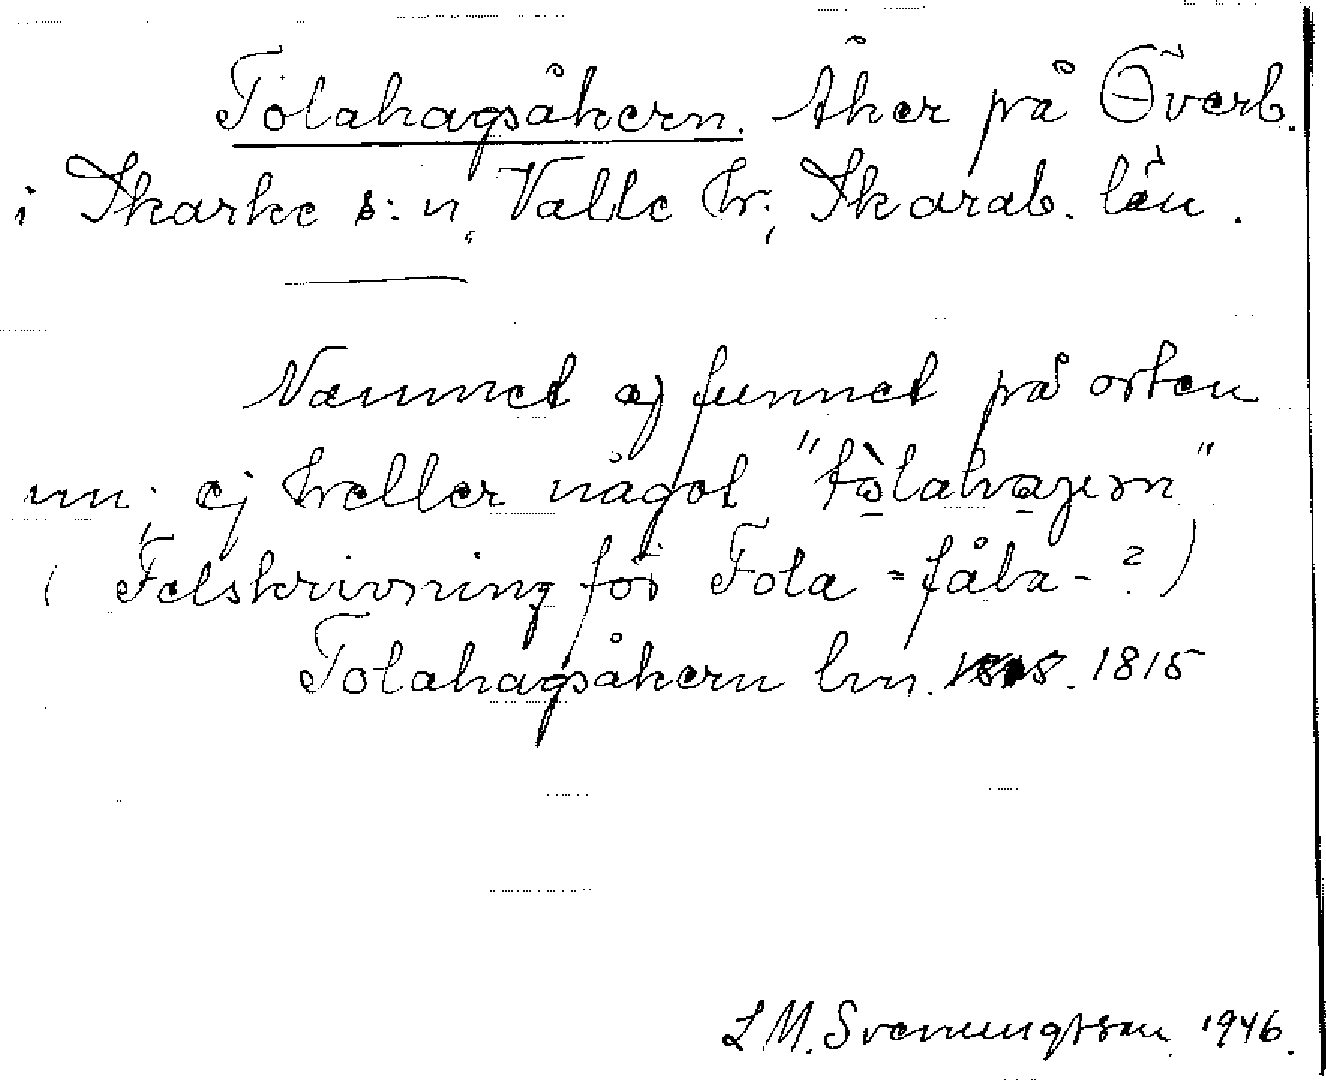 Tolahagsåkern. Åker på Överb.
i Skarke s:n, Valle hr; Skarab. län.
Namnet ej funnet på orten
nu; ej heller något "tòlahagen"
( Felskrivning för Fola - fåla - ? )
Tolahagsåkern lm. 1815
L M. Svenungsson 1946.